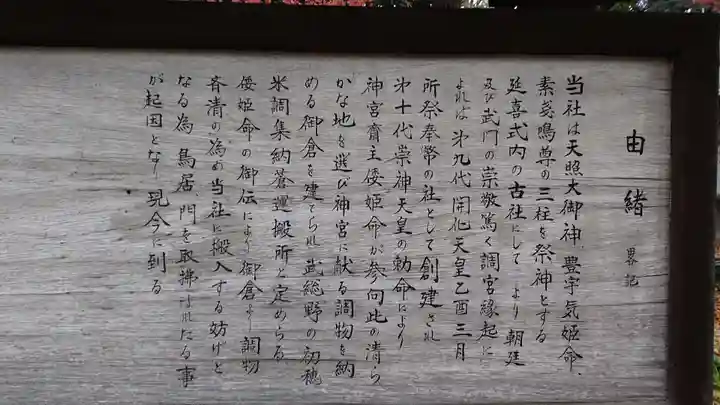 由緒 畧記
当社は天照大御神、豊宇気姫命、
素戔鳴尊の三柱を祭神とする
延喜式内の古社にして より 朝廷
及び武門の崇敬篤く調宮縁起に
よれば 第九代 開化天皇乙酉三月
所祭奉幣の社として創建され
第十代崇神天皇の勅命により
神宮齋主倭姫命が参向此の清ら
かな地を選び神宮に献る調物を納
める御倉を建てられ武総野の初穂
米調集納蒼運搬所と定めらる
倭姫命の御伝により御倉より調物
斉清の為め当社に搬入する妨げと
なる為鳥居、門を取拂はれたる事
が起因となり現今に到る